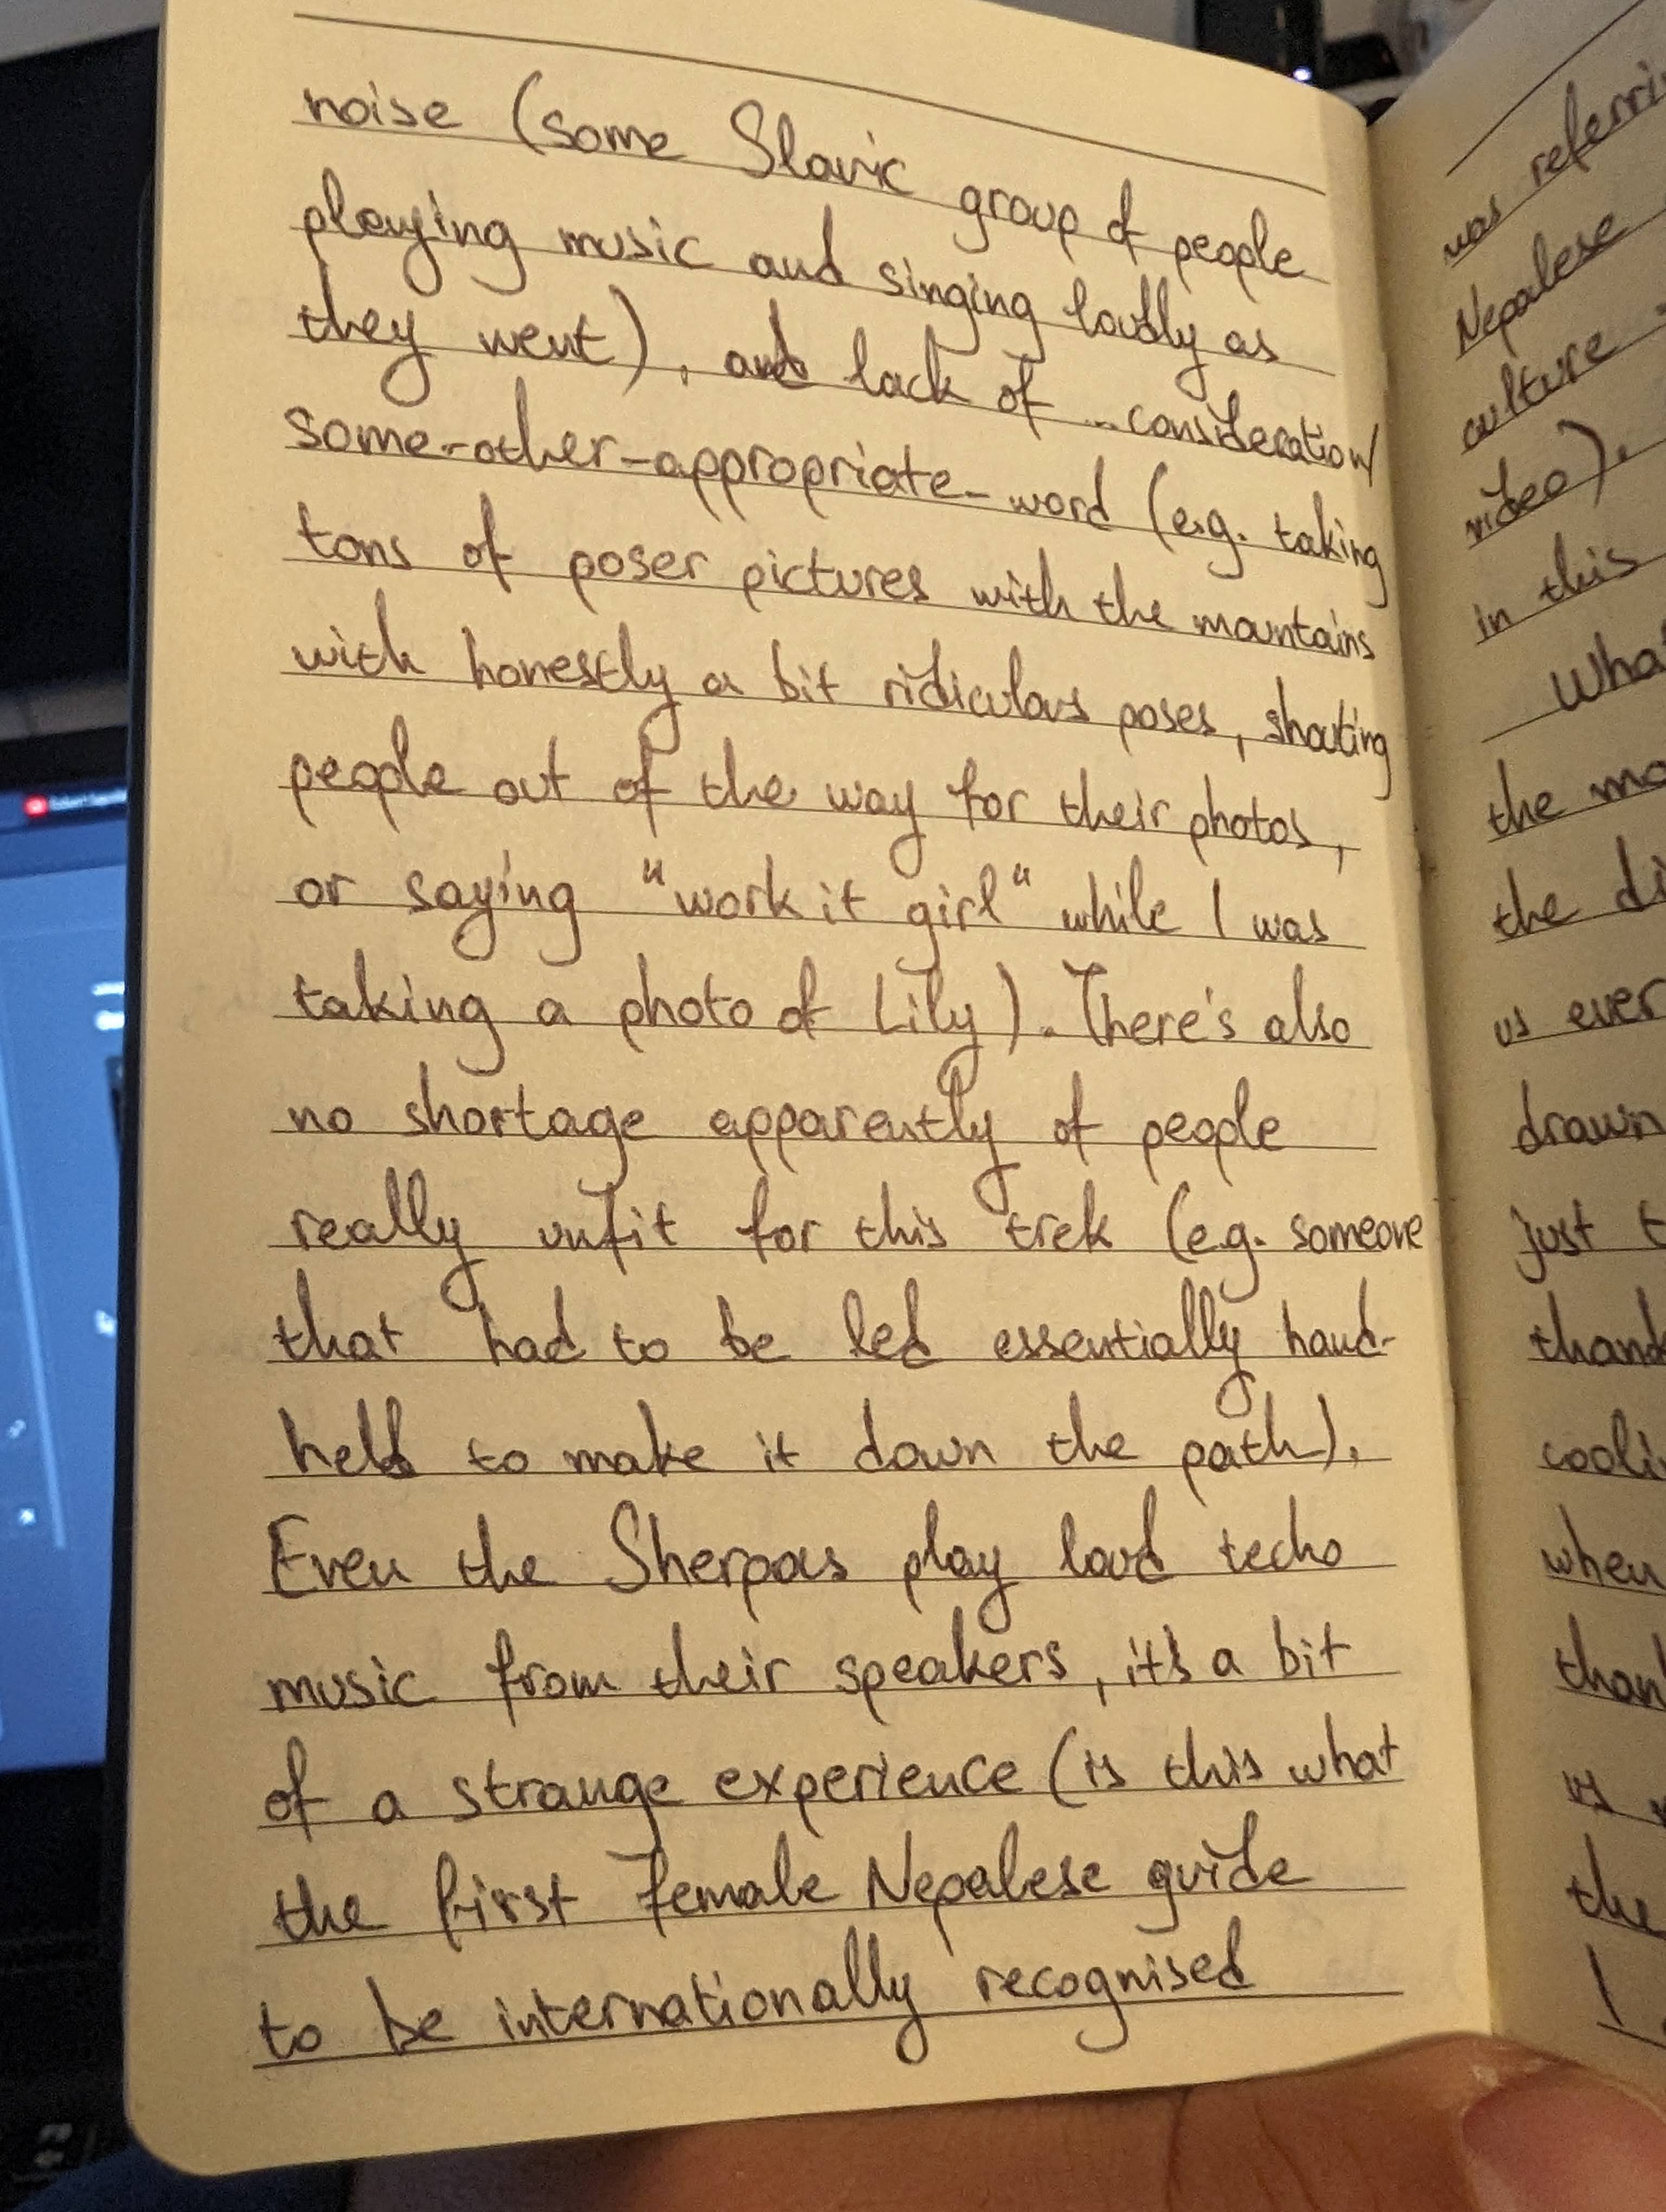 noise (some Slavic group of people
playing music and singing loudly as
they went), and lack of ...consideration/
some-other-appropriate-word (e.g. taking
tons of poser pictures with the mountains
with honestly a bit ridiculous poses, shouting
people out of the way for their photos,
or saying "work it girl" while I was
taking a photo of Lily). There's also
no shortage apparently of people
really unfit for this trek (e.g. someone
that had to be led essentially hand-
held to make it down the path).
Even the Sherpas play loud techo
music from their speakers, it's a bit
of a strange experience (is this what
the first female Nepalese guide
to be internationally recognised
was
Nepalese
culture
video).
in this
the
the
us ever
drawn
just
when
the
I